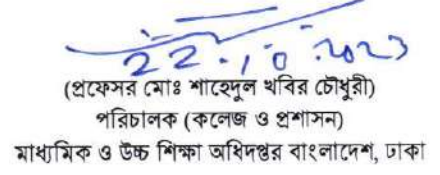 22.10.2023
(প্রফেসর মোঃ শাহেদুল খবির চৌধুরী)
পরিচালক (কলেজ ও প্রশাসন)
মাধ্যমিক ও উচ্চ শিক্ষা অধিদপ্তর বাংলাদেশ, ঢাকা